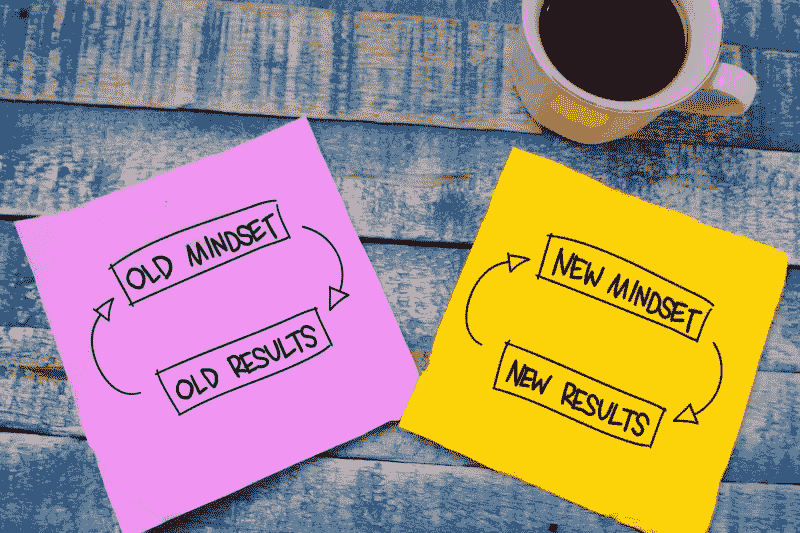 OLD MINDSET
OLD RESULTS
NEW MINDSET
NEW RESULTS